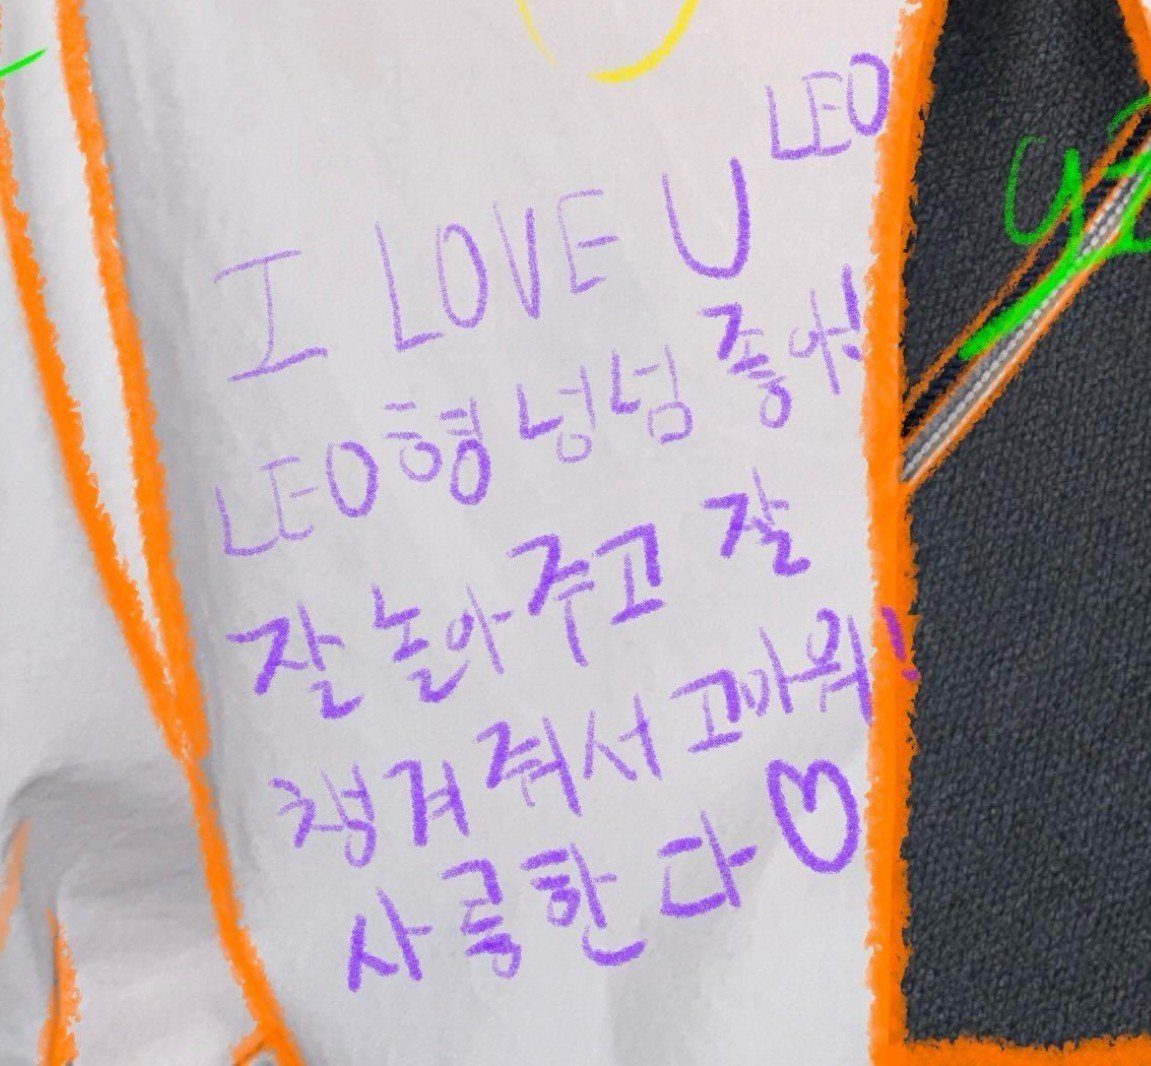 LEO
I LOVE U
LEOㅎ형 넝넘 좋아!
잘 놀아주고 잘
챙겨줘서 고마워!
사릉한다♡